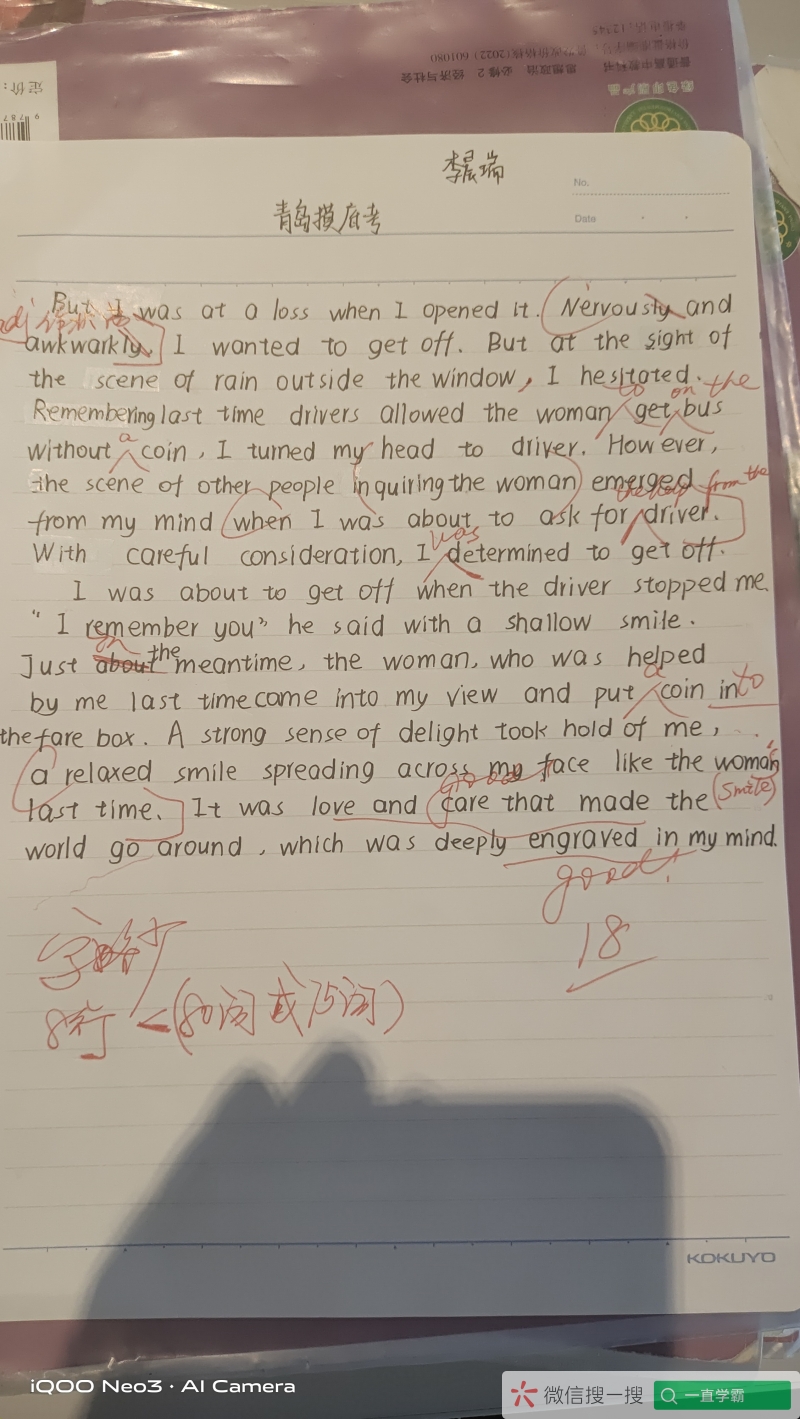 普通高中教科书 思想政治 必修2 经济与社会
(2022) 601080
12345
定价:
9 787
李晨瑞
No.
青岛摸底考
Date
But I was at a loss when I opened it. Nervously and
adj 作状语
awkwarkly, I wanted to get off. But at the sight of
the scene of rain outside the window, I hesitated.
to on the
Remembering last time drivers allowed the woman get bus
a
without coin, I turned my head to driver. However,
the scene of other people inquiring the woman emerged
the help from the
from my mind when I was about to ask for driver.
was
With careful consideration, I determined to get off.
I was about to get off when the driver stopped me.
" I remember you" he said with a shallow smile.
in
Just about the meantime, the woman, who was helped
a
by me last time come into my view and put coin into
the fare box. A strong sense of delight took hold of me,
a relaxed smile spreading across my face like the woman's
last time. It was love and care that made the (smile)
world go around, which was deeply engraved in my mind.
good!
18
字略少
8行 <(80词或75词)
KOKUYO
iQOO Neo3 · AI Camera
微信搜一搜
一直学霸